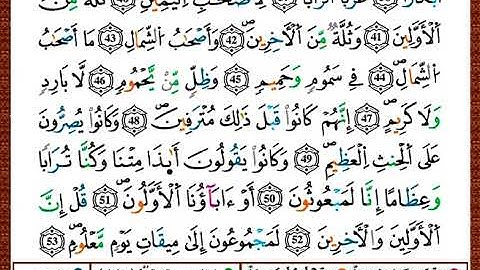 لِّأَصْحَٰبِ ٱلْيَمِينِ 40 ثُلَّةٌ مِّنَ
ٱلْأَوَّلِينَ 41 وَثُلَّةٌ مِّنَ ٱلْأَخِرِينَ 42 وَأَصْحَٰبُ ٱلشِّمَالِ 43 مَا أَصْحَٰبُ
ٱلشِّمَالِ 44 فِى سَمُومٍ وَحَمِيمٍ 45 وَظِلٍّ مِّنْ يَّحْمُومٍ 46 لَّا بَارِدٍ
وَلَا كَرِيمٍ 47 إِنَّهُمْ كَانُوا۟ قَبْلَ ذَٰلِكَ مُتْرَفِينَ 48 وَكَانُوا۟ يُصِرُّونَ
عَلَى ٱلْحِنثِ ٱلْعَظِيمِ 49 وَكَانُوا۟ يَقُولُونَ أَىِٕذَا مِتْنَا وَكُنَّا تُرَابًا
وَعِظَٰمًا إِنَّا لَمَبْعُوثُونَ 50 أَوْ ءَابَآؤُنَا ٱلْأَوَّلُونَ 51 قُلْ إِنَّ
ٱلْأَوَّلِينَ وَٱلْأَخِرِينَ 52 لَمَجْمُوعُونَ إِلَىٰ مِيقَٰتِ يَوْمٍ مَّعْلُومٍ 53